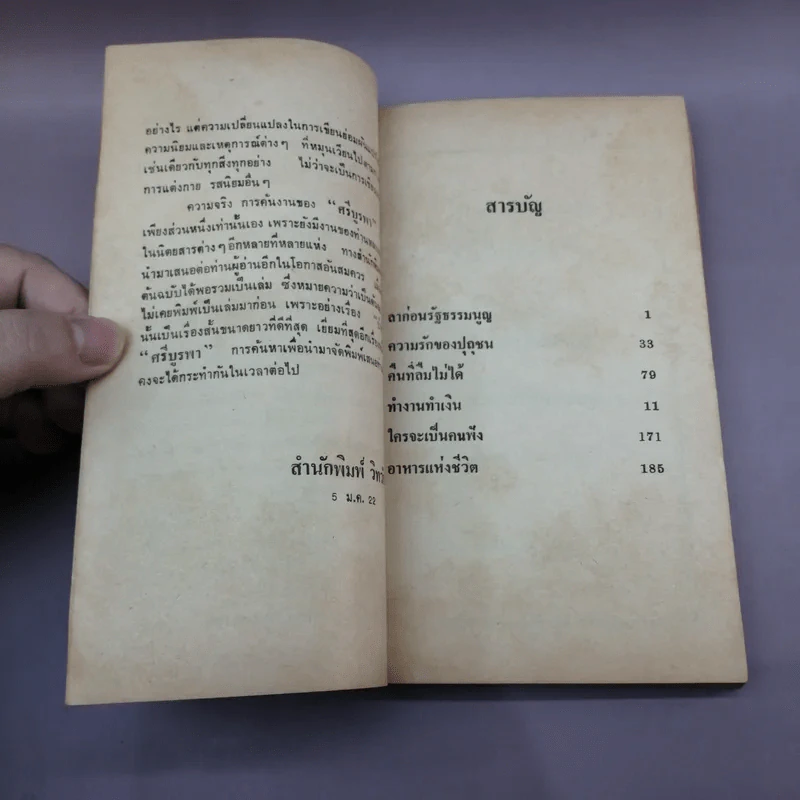 อย่างไร แต่ความเปลี่ยนแปลงในการเขียนย่อม
ความนิยมและเหตุการณ์ต่างๆ ที่หมุนเวียนไป
เช่นเดียวกับทุกสิ่งทุกอย่าง ไม่ว่าจะเป็นการ
การแต่งกาย รสนิยมอื่นๆ
ความจริง การค้นงานของ “ศรีบูรพา”
เพียงส่วนหนึ่งเท่านั้นเอง เพราะยังมีงานของท่าน
ในนิตยสารต่างๆ อีกหลายที่หลายแห่ง ทาง
นำมาเสนอต่อท่านผู้อ่านอีกในโอกาสอันสมควร
ต้นฉบับได้พอรวมเป็นเล่ม ซึ่งหมายความว่าเป็น
ไม่เคยพิมพ์เป็นเล่มมาก่อน เพราะอย่างเรื่อง
นั้นเป็นเรื่องสั้นขนาดยาวที่ดีที่สุด เยี่ยมที่สุดอีก
“ศรีบูรพา” การค้นหาเพื่อนำมาจัดพิมพ์
คงจะได้กระทำกันในเวลาต่อไป
สำนักพิมพ์
5 ม.ค. 22
สารบัญ
ลาก่อนรัฐธรรมนูญ 1
ความรักของปุถุชน 33
คืนที่ลืมไม่ได้ 79
ทำงานทำเงิน 11
ใครจะเป็นคนฟัง 171
อาหารแห่งชีวิต 185